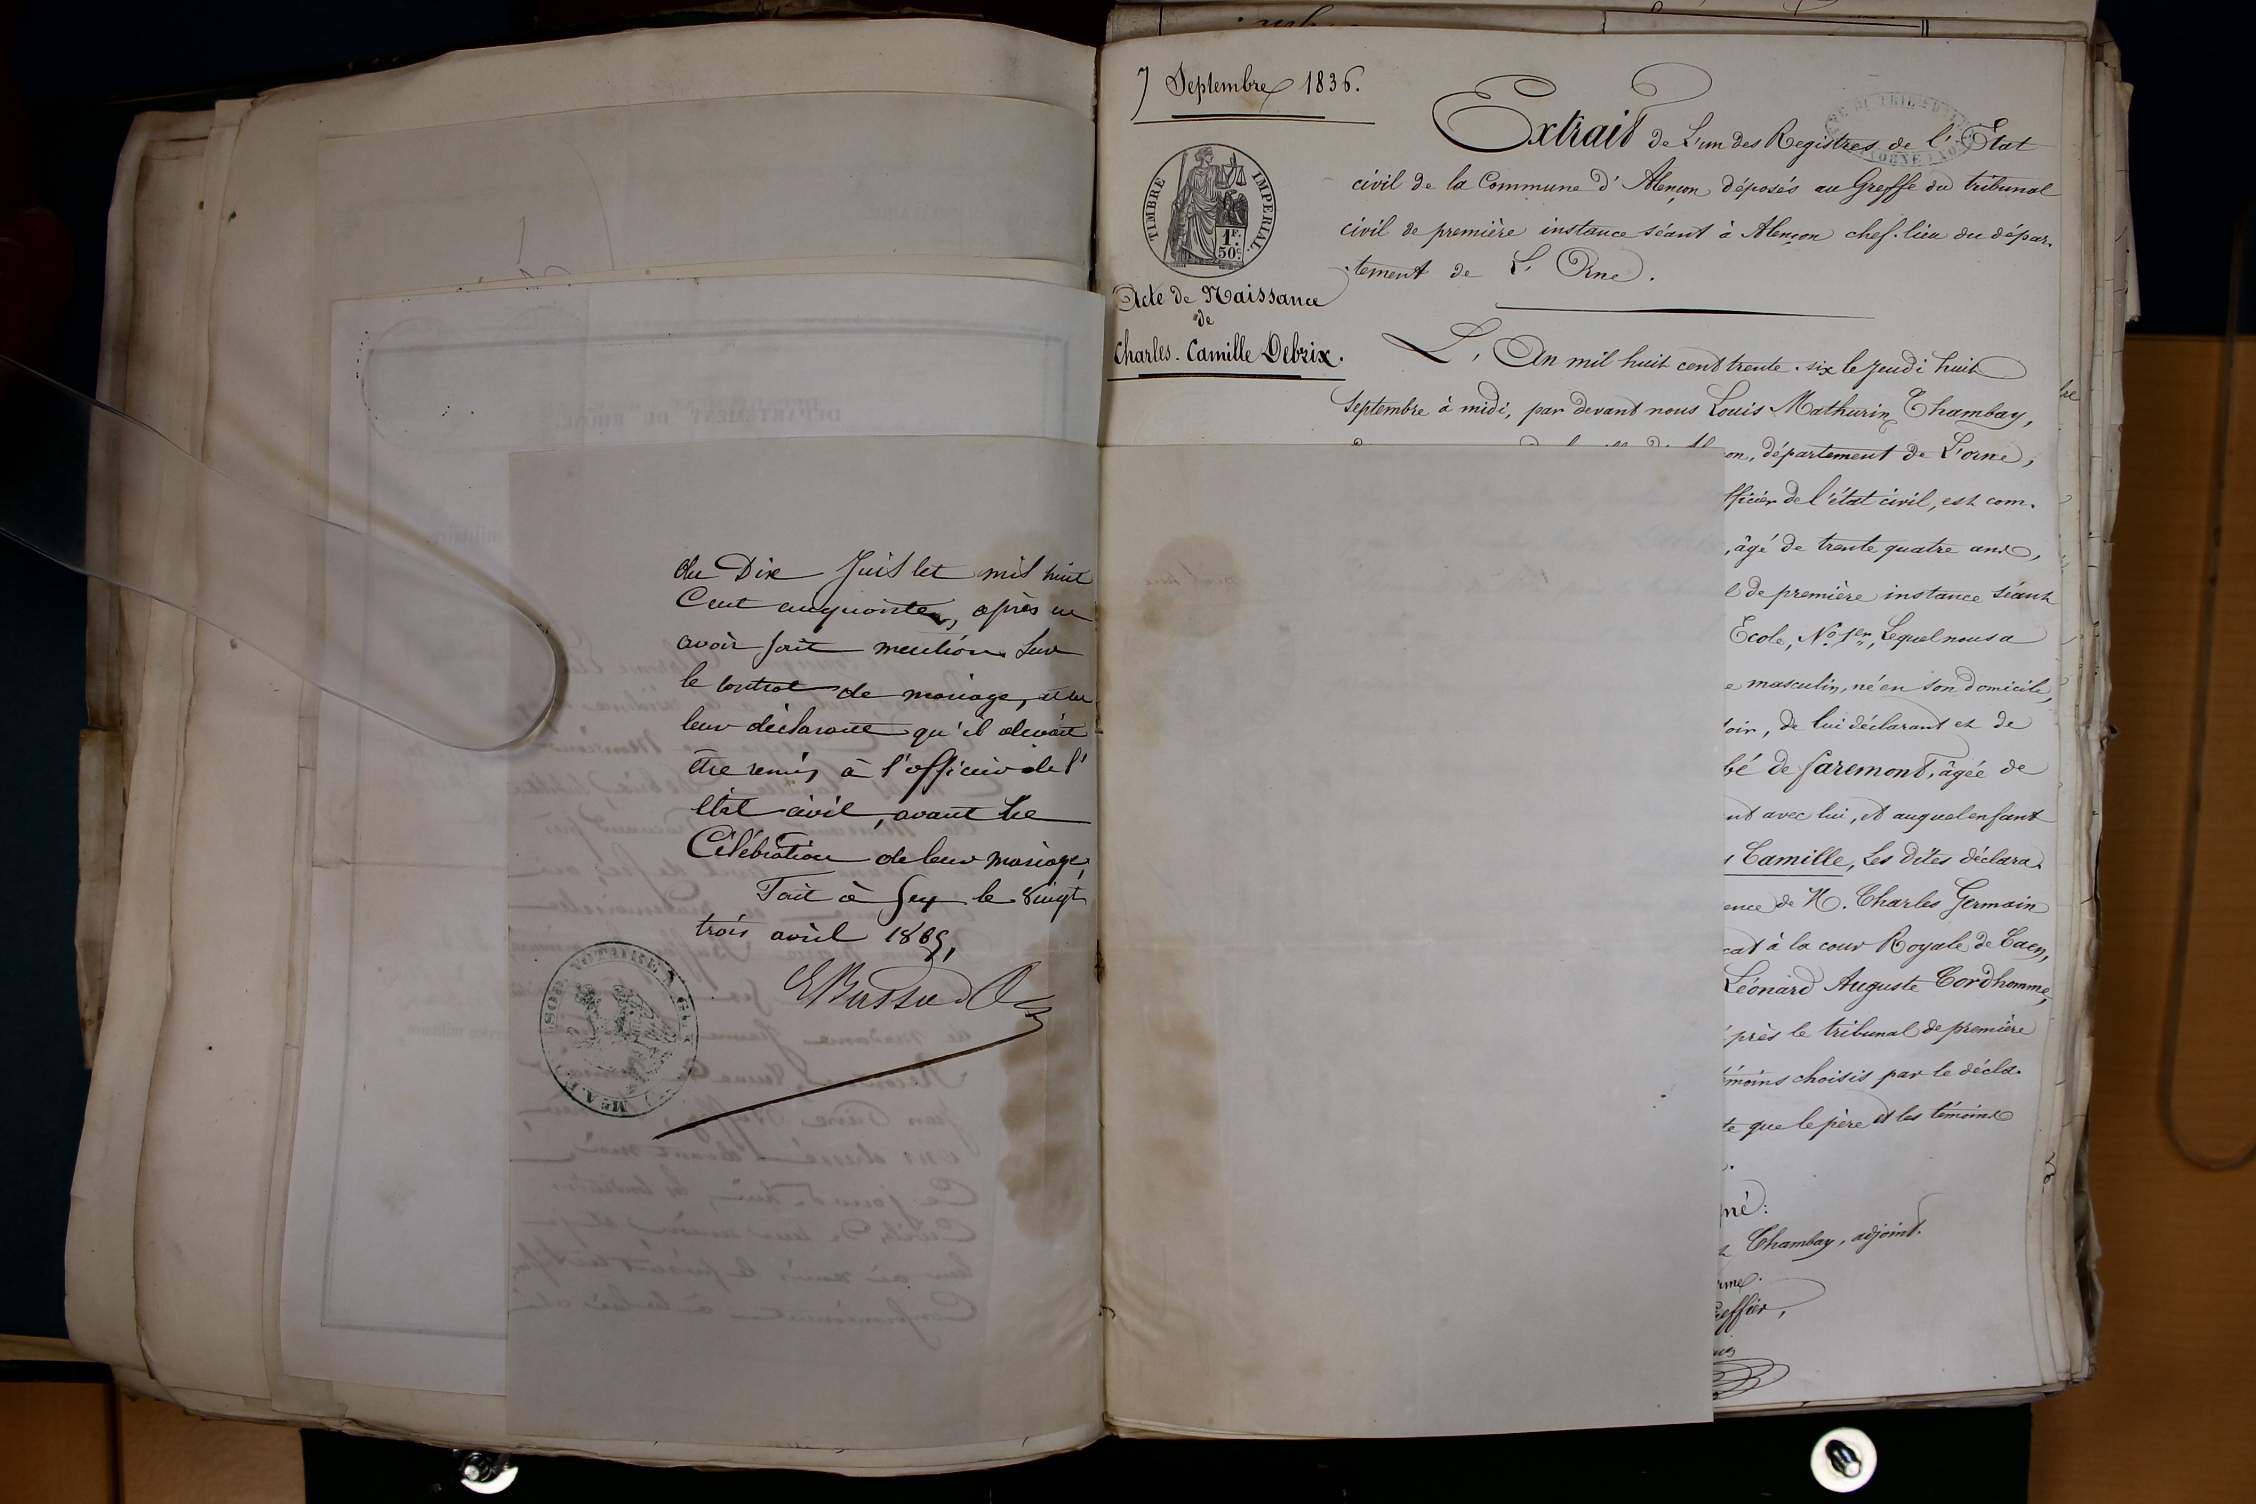 du Dix Juillet mil huit
Cent cinquante, après en
avoir fait mention sur
le contrat de mariage, et en
leur déclarant qu'il devait
être remis à l'officier de l'
Etat civil, avant la
Célébration de leur mariage,
Fait à Gex le vingt
trois avril 1865,
NOTAIRE A GEX
7 Septembre 1836.
TIMBRE IMPERIAL
1F.
50c.
Acte de Naissance
de
Charles-Camille Debrix.
Extrait de L'un des Registres de l'Etat
civil de la Commune d'Alençon déposés au Greffe du tribunal
civil de première instance séant à Alençon chef-lieu du dépar-
-tement de L'Orne.
L'An mil huit cent trente-six le Jeudi huit
Septembre à midi, par devant nous Louis Mathurin Chambay,
on, département de L'orne,
fficier de l'état civil, est com-
, âgé de trente quatre ans,
l de première instance séant
Ecole, No. 1er, Lequel nous a
e masculin, né en son domicile,
oir, de lui déclarant et de
bé de faremont, âgée de
nt avec lui, et auquel enfant
, Camille, Les dites déclara-
ence de M. Charles Germain
cat à la cour Royale de Caen,
Léonard Auguste Cordhomme,
près le tribunal de première
émoins choisis par le décla-
te que le père et les témoins
né:
Chambay, adjoint.
reffier,